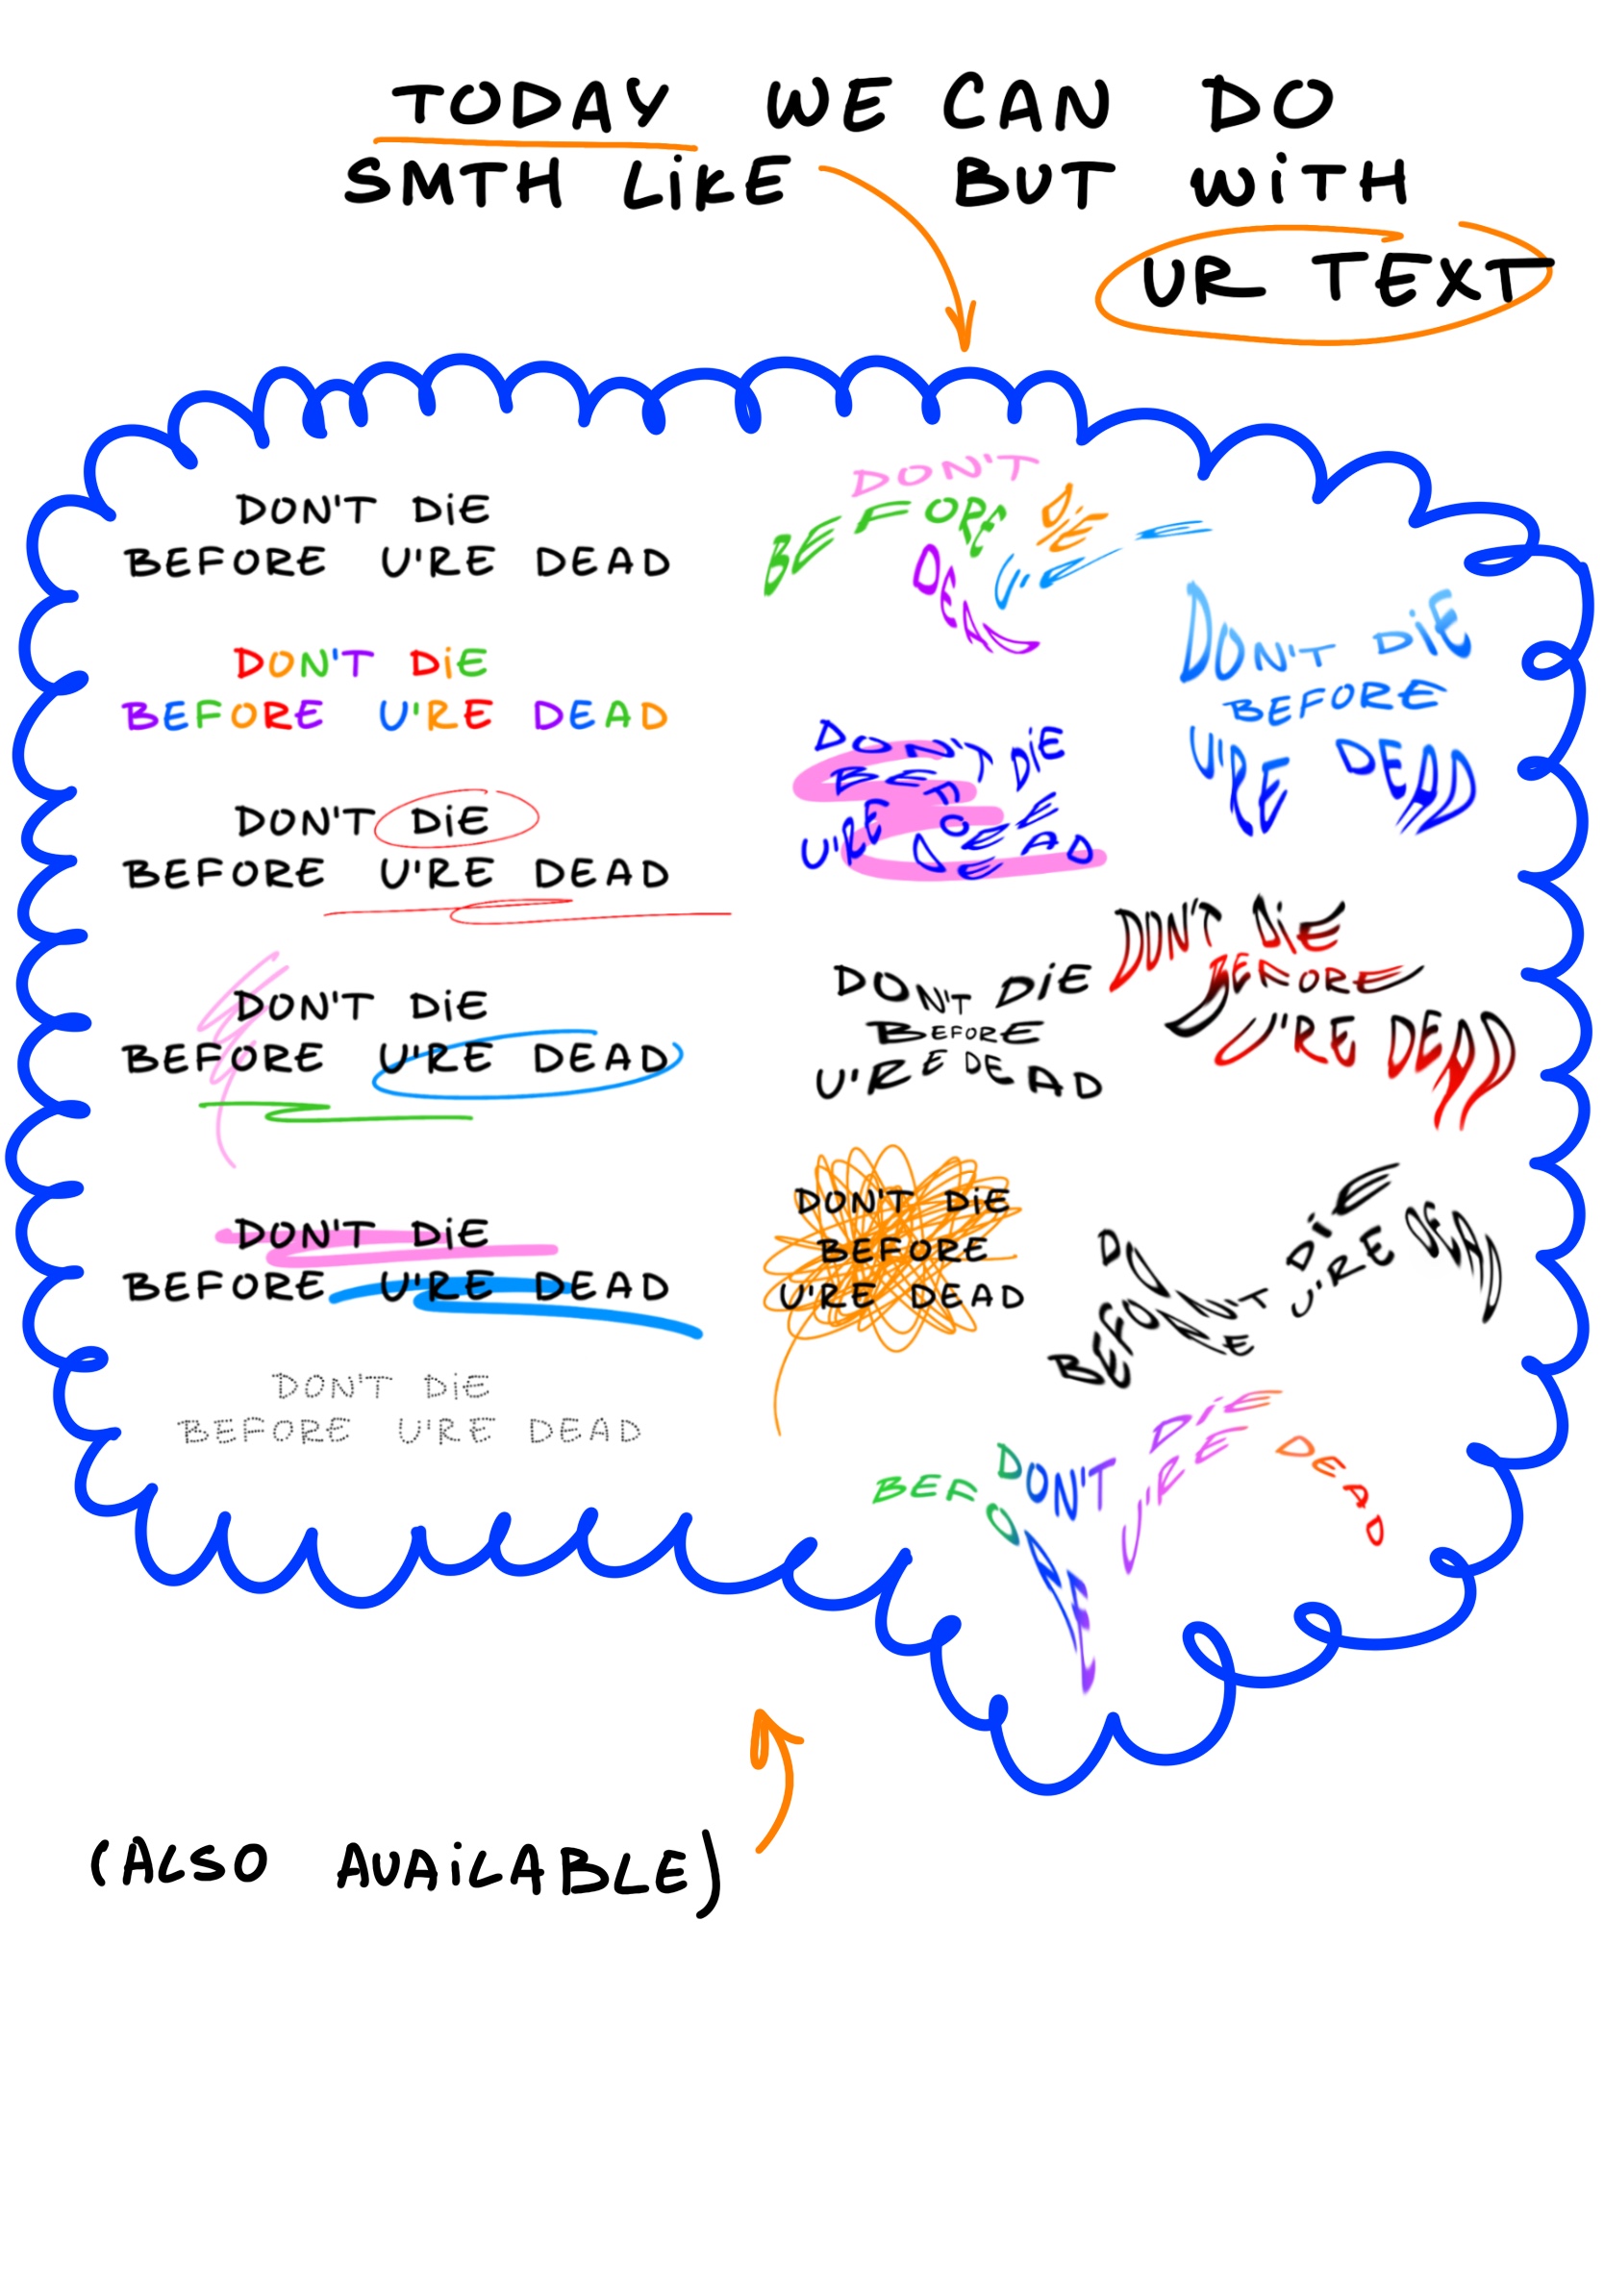 TODAY WE CAN DO
SMTH LiKE BUT WiTH
UR TEXT
DON'T DiE
BEFORE U'RE DEAD
DON'T DiE
BEFORE U'RE DEAD
DON'T DiE
BEFORE U'RE DEAD
DON'T DiE
BEFORE U'RE DEAD
DON'T DiE
BEFORE U'RE DEAD
DON'T DiE
BEFORE U'RE DEAD
DON'T DiE
BEFORE U'RE
DEAD
DON'T DiE
BEFORE
U'RE DEAD
DON'T DiE
BEFORE
U'RE DEAD
DON'T DiE
BEFORE
U'RE DEAD
DON'T DiE
BEFORE
U'RE DEAD
DON'T DiE
BEFORE
U'RE DEAD
DON'T DiE
BEFORE U'RE DEAD
DON'T DiE
BEFORE U'RE DEAD
(ALSO AVAiLABLE)